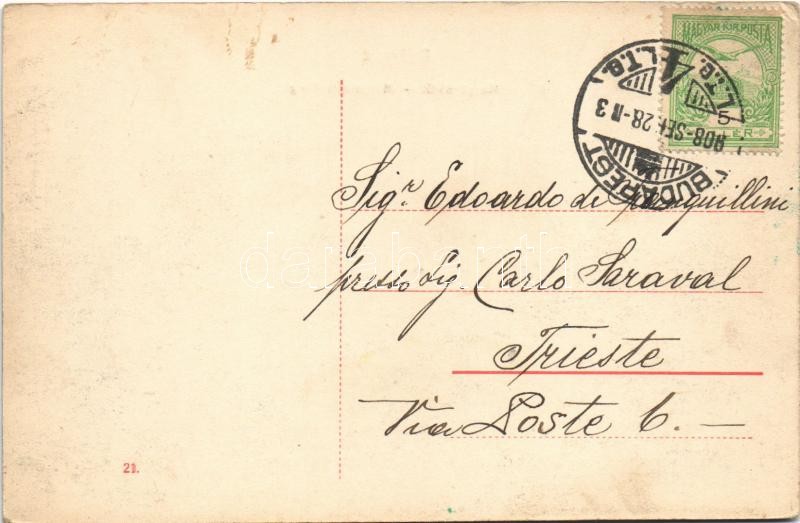 MAGYAR KIR. POSTA
5
BUDAPEST
908-SEP. 28-N 3
4
L.T.G. L.T.G.
Sigr. Edoardo de
presso Sig Carlo Saraval
Trieste
Via Poste 6. —
21.
darabanth